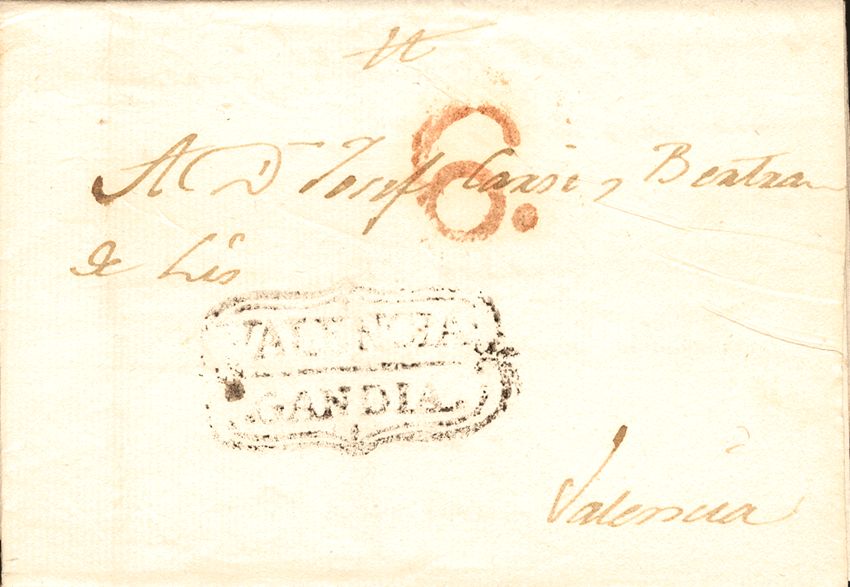 A Dn Josef Carsi y Bertran
de Lis
6.
VALENCIA.
GANDIA.
Valencia